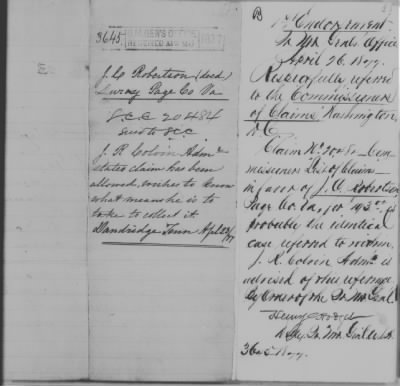 3645.
RECEIVED
1877
J. C. Robertson (decd)
Luray Page Co Va
S.C.C. 20484
J. R. Colvin Admr
states claim has been
allowed, wishes to know
what means he is to
take to collect it
Dandridge Tenn Apl 23/77
1st Endorsement
Qr. Mr. Genls Office
April 26. 1877.
Respectfully referred
to the Commissioners
of Claims Washington,
D.C.
Claim No. 20484 Com-
missioners List of Claims
in favor of J. C. Robertson
Page Co. Va. for
probably the identical
case referred to within.
J. R. Colvin Admr. is
advised of this reference
By Order of the Qr. Mr. Genl.
Dep. Qr. Mr. Genl. U.S.A.
3645. 1877.